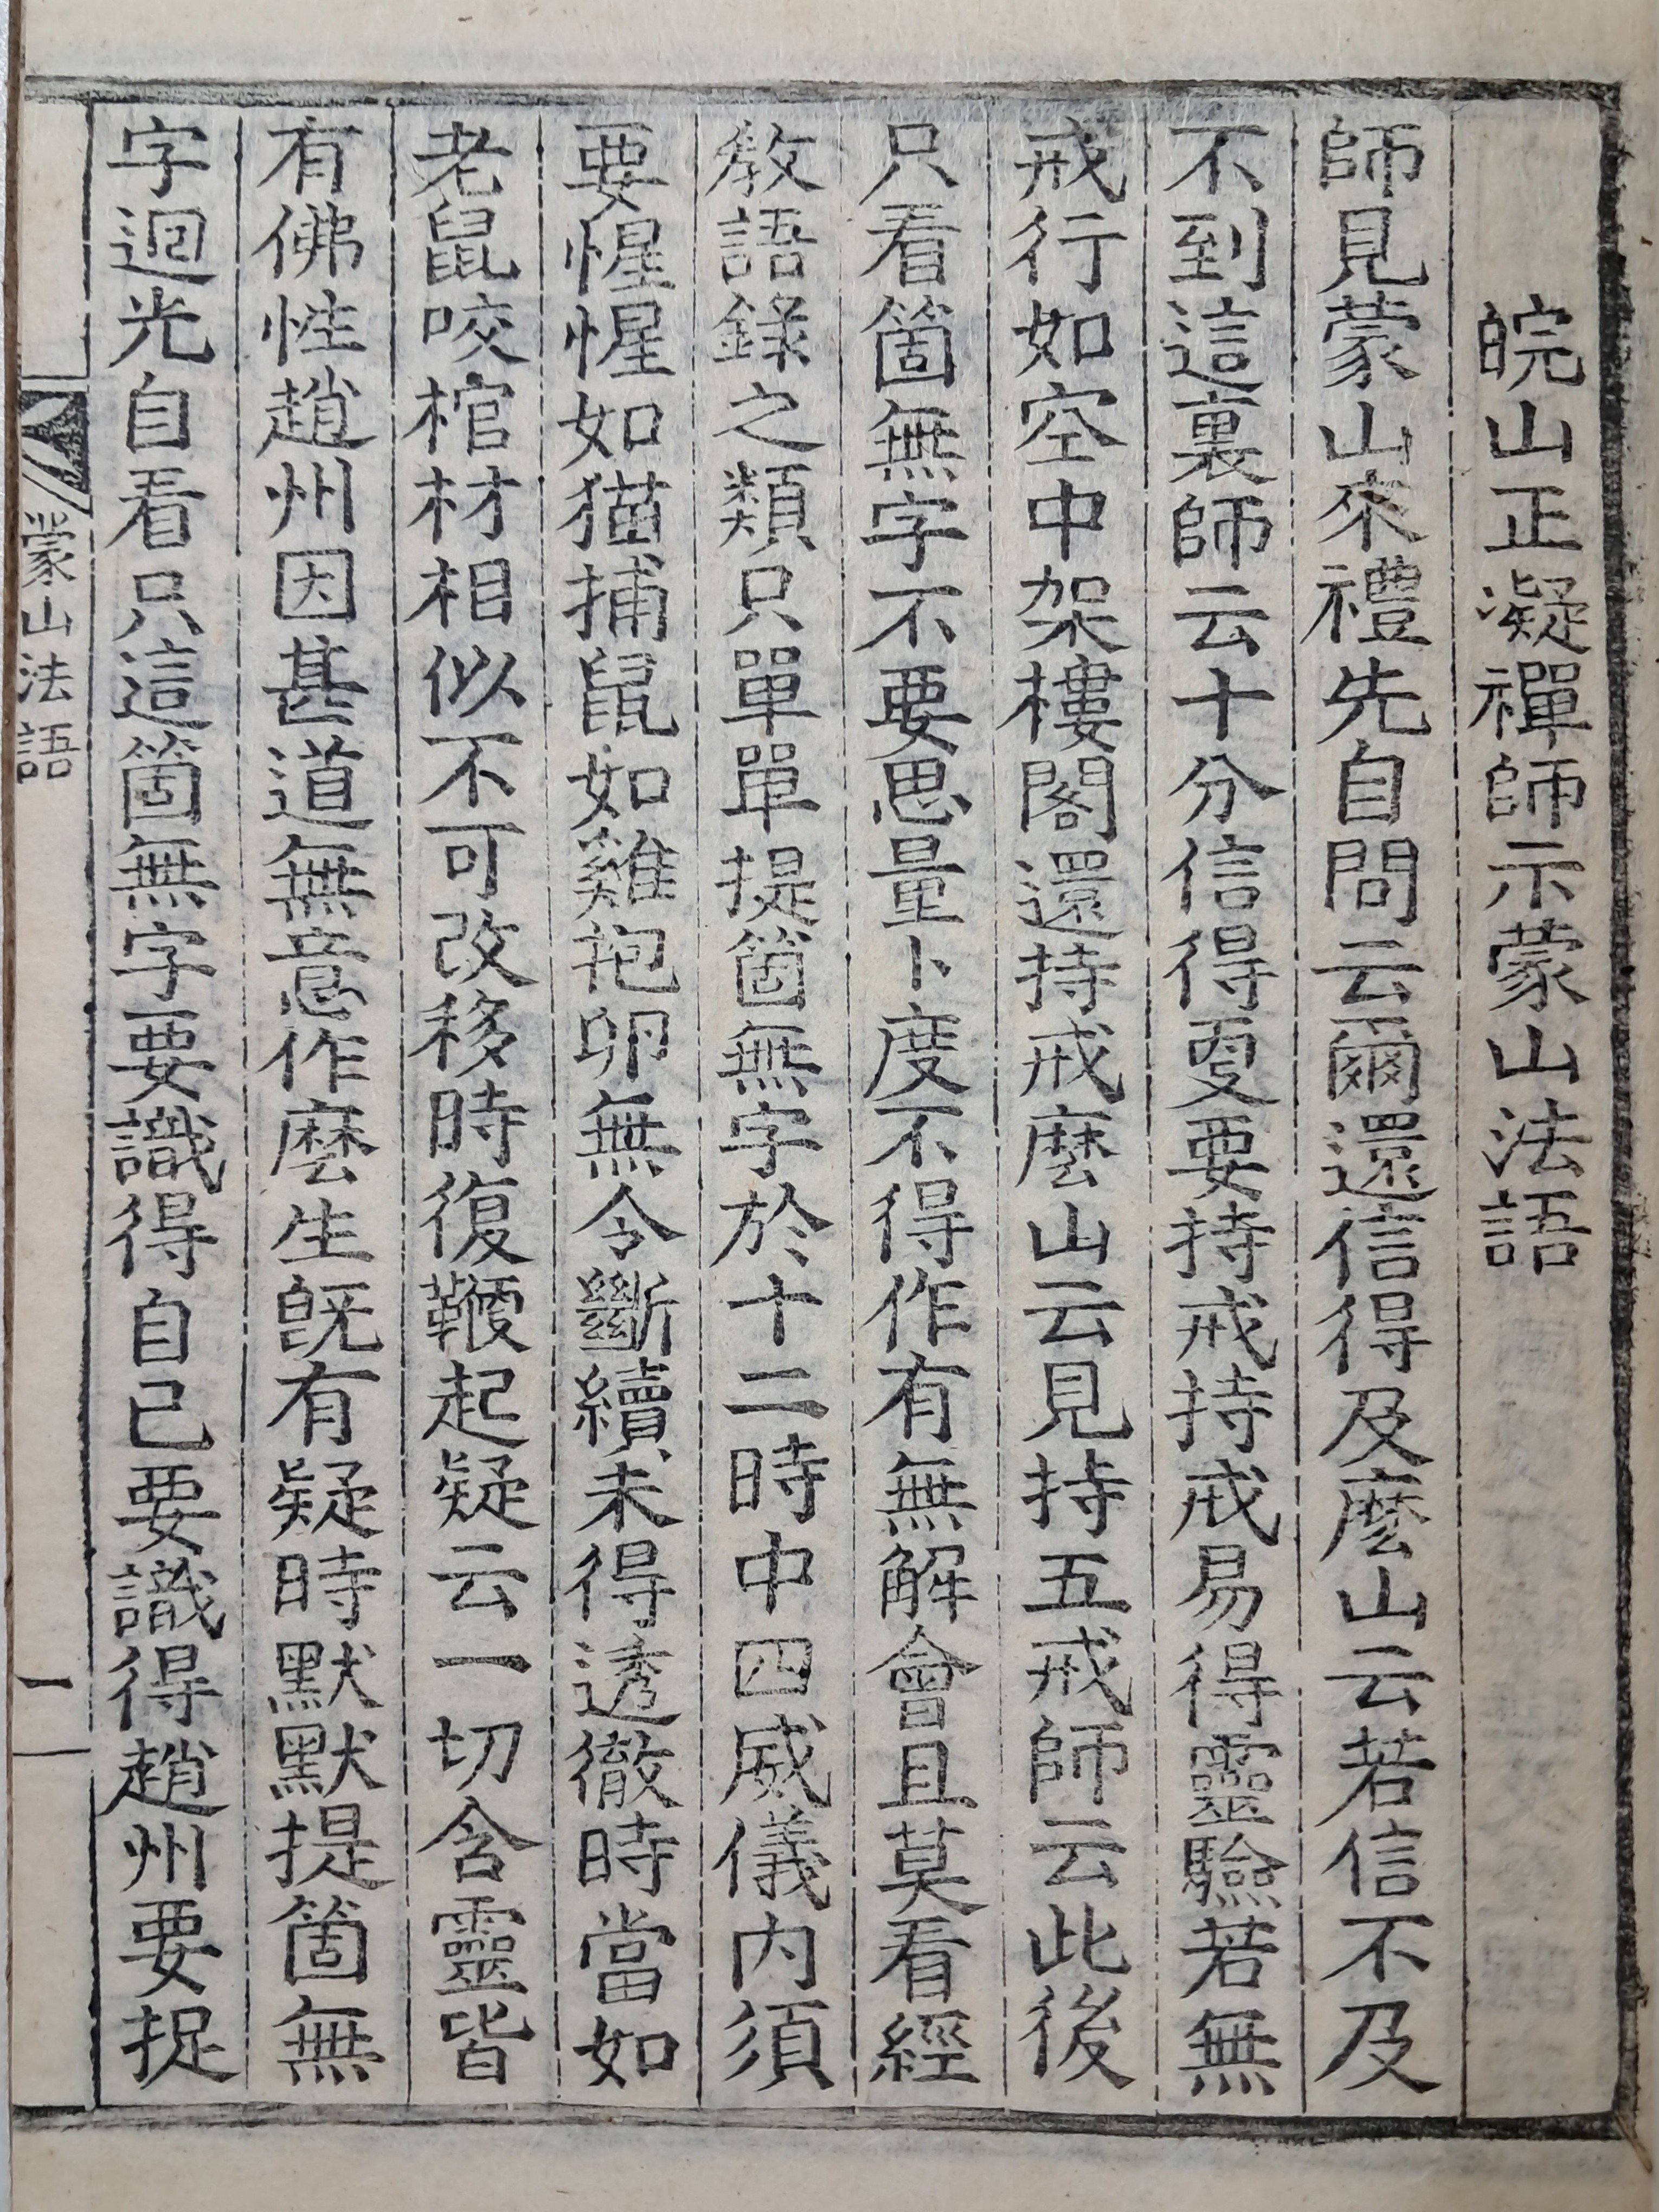 皖山正凝禪師示蒙山法語
師見蒙山來禮先自問云爾還信得及麽山云若信不及
不到這裏師云十分信得更要持戒持戒易得靈驗若無
戒行如空中架樓閣還持戒麽山云見持五戒師云此後
只看箇無字不要思量卜度不得作有無解會且莫看經
敎語錄之類只單單提箇無字於十二時中四威儀內須
要惺惺如猫捕鼠如雞抱卵無令斷續未得透徹時當如
老鼠咬棺材相似不可改移時復鞭起疑云一切含靈皆
有佛性趙州因甚道無意作麽生旣有疑時默默提箇無
字迴光自看只這箇無字要識得自己要識得趙州要捉
蒙山法語
一